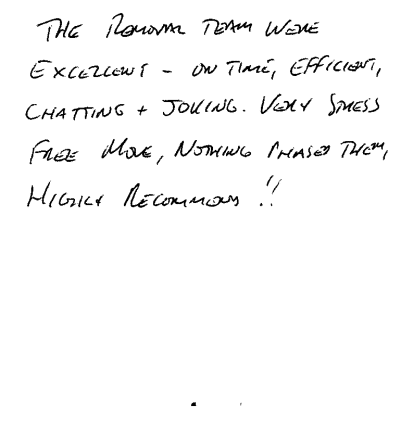 THE REMOVAL TEAM WERE
EXCELLENT - ON TIME, EFFICIENT,
CHATTING + JOKING. VERY STRESS
FREE MOVE, NOTHING PHASED THEM,
HIGHLY RECOMMEND !!